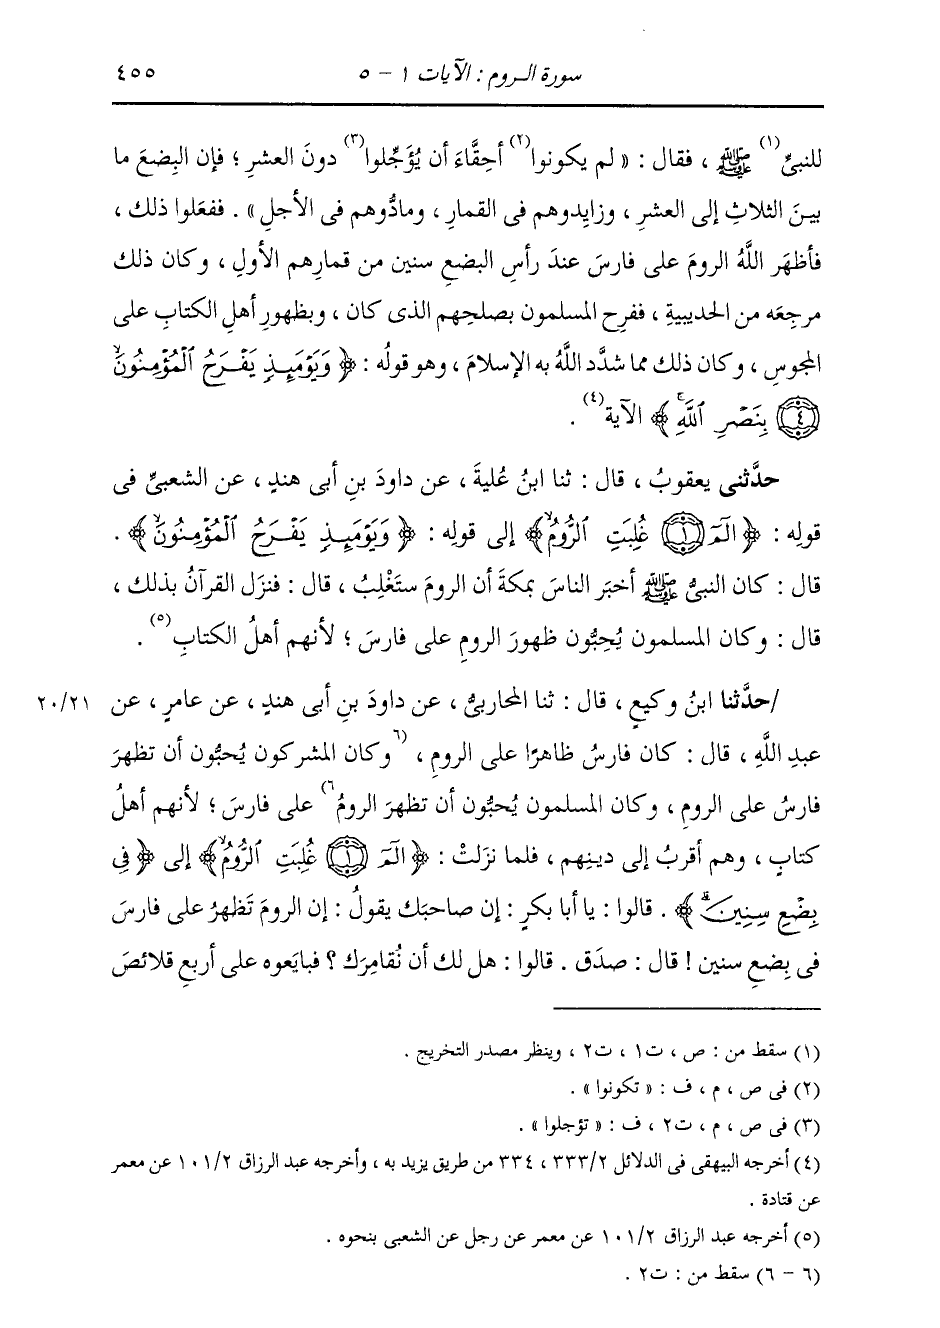 سورة الـروم : الآيات ١ - ٥ ٤٥٥
للنبىِّ(١) ﷺ ، فقال : « لم يكونوا(٢) أحِقَّاءَ أن يُؤَجِّلوا(٣) دونَ العشرِ ؛ فإن البِضعَ ما
بينَ الثلاثِ إلى العشرِ ، وزايِدوهم فى القمارِ ، ومادُّوهم فى الأجلِ » . ففعَلوا ذلك ،
فأظهَر اللَّهُ الرومَ على فارسَ عندَ رأسِ البضعِ سنين من قمارِهم الأولِ ، وكان ذلك
مرجِعَه من الحديبيةِ ، ففرِح المسلمون بصلحِهم الذى كان ، وبظهورِ أهلِ الكتابِ على
المجوسِ ، وكان ذلك مما شدَّد اللَّهُ به الإسلامَ ، وهو قولُه : ﴿ وَيَوْمَىِٕذٍ يَفْـرَحُ ٱلْمُؤْمِنُونَۙ
(٤) بِنَصْرِ ٱللَّهِۚ ﴾ الآية(٤) .
حدَّثنى يعقوبُ ، قال : ثنا ابنُ عُليةَ ، عن داودَ بنِ أبى هندٍ ، عن الشعبىِّ فى
قولِه : ﴿ الٓمٓ (١) غُلِبَتِ ٱلرُّومُۙ ﴾ إلى قولِه : ﴿ وَيَوْمَىِٕذٍ يَفْـرَحُ ٱلْمُؤْمِنُونَۙ ﴾ .
قال : كان النبىُّ ﷺ أخبَر الناسَ بمكةَ أن الرومَ ستَغْلِبُ ، قال : فنزَل القرآنُ بذلك ،
قال : وكان المسلمون يُحِبُّون ظهورَ الرومِ على فارسَ ؛ لأنهم أهلُ الكتابِ(٥) .
/حدَّثنا ابنُ وكيعٍ ، قال : ثنا المحاربىُّ ، عن داودَ بنِ أبى هندٍ ، عن عامرٍ ، عن ٢٠/٢١
عبدِ اللَّهِ ، قال : كان فارسُ ظاهرًا على الرومِ ، (٦وكان المشركون يُحبُّون أن تظهَرَ
فارسُ على الرومِ ، وكان المسلمون يُحبُّون أن تظهَرَ الرومُ٦) على فارسَ ؛ لأنهم أهلُ
كتابٍ ، وهم أقربُ إلى دينِهم ، فلما نزَلتْ : ﴿ الٓمٓ (١) غُلِبَتِ ٱلرُّومُۙ ﴾ إلى ﴿ فِى
بِضْعِ سِنِينَۗ ﴾ . قالوا : يا أبا بكرٍ : إن صاحبَك يقولُ : إن الرومَ تَظهرُ على فارسَ
فى بِضعِ سنين ! قال : صدَق . قالوا : هل لك أن نُقامِرَك ؟ فبايَعوه على أربعِ قلائصَ
(١) سقط من : ص ، ت١ ، ت٢ ، وينظر مصدر التخريج .
(٢) فى ص ، م ، ف : « تكونوا » .
(٣) فى ص ، م ، ت٢ ، ف : « تؤجلوا » .
(٤) أخرجه البيهقى فى الدلائل ٣٣٣/٢ ، ٣٣٤ من طريق يزيد به ، وأخرجه عبد الرزاق ١٠١/٢ عن معمر
عن قتادة .
(٥) أخرجه عبد الرزاق ١٠١/٢ عن معمر عن رجل عن الشعبى بنحوه .
(٦ - ٦) سقط من : ت٢ .